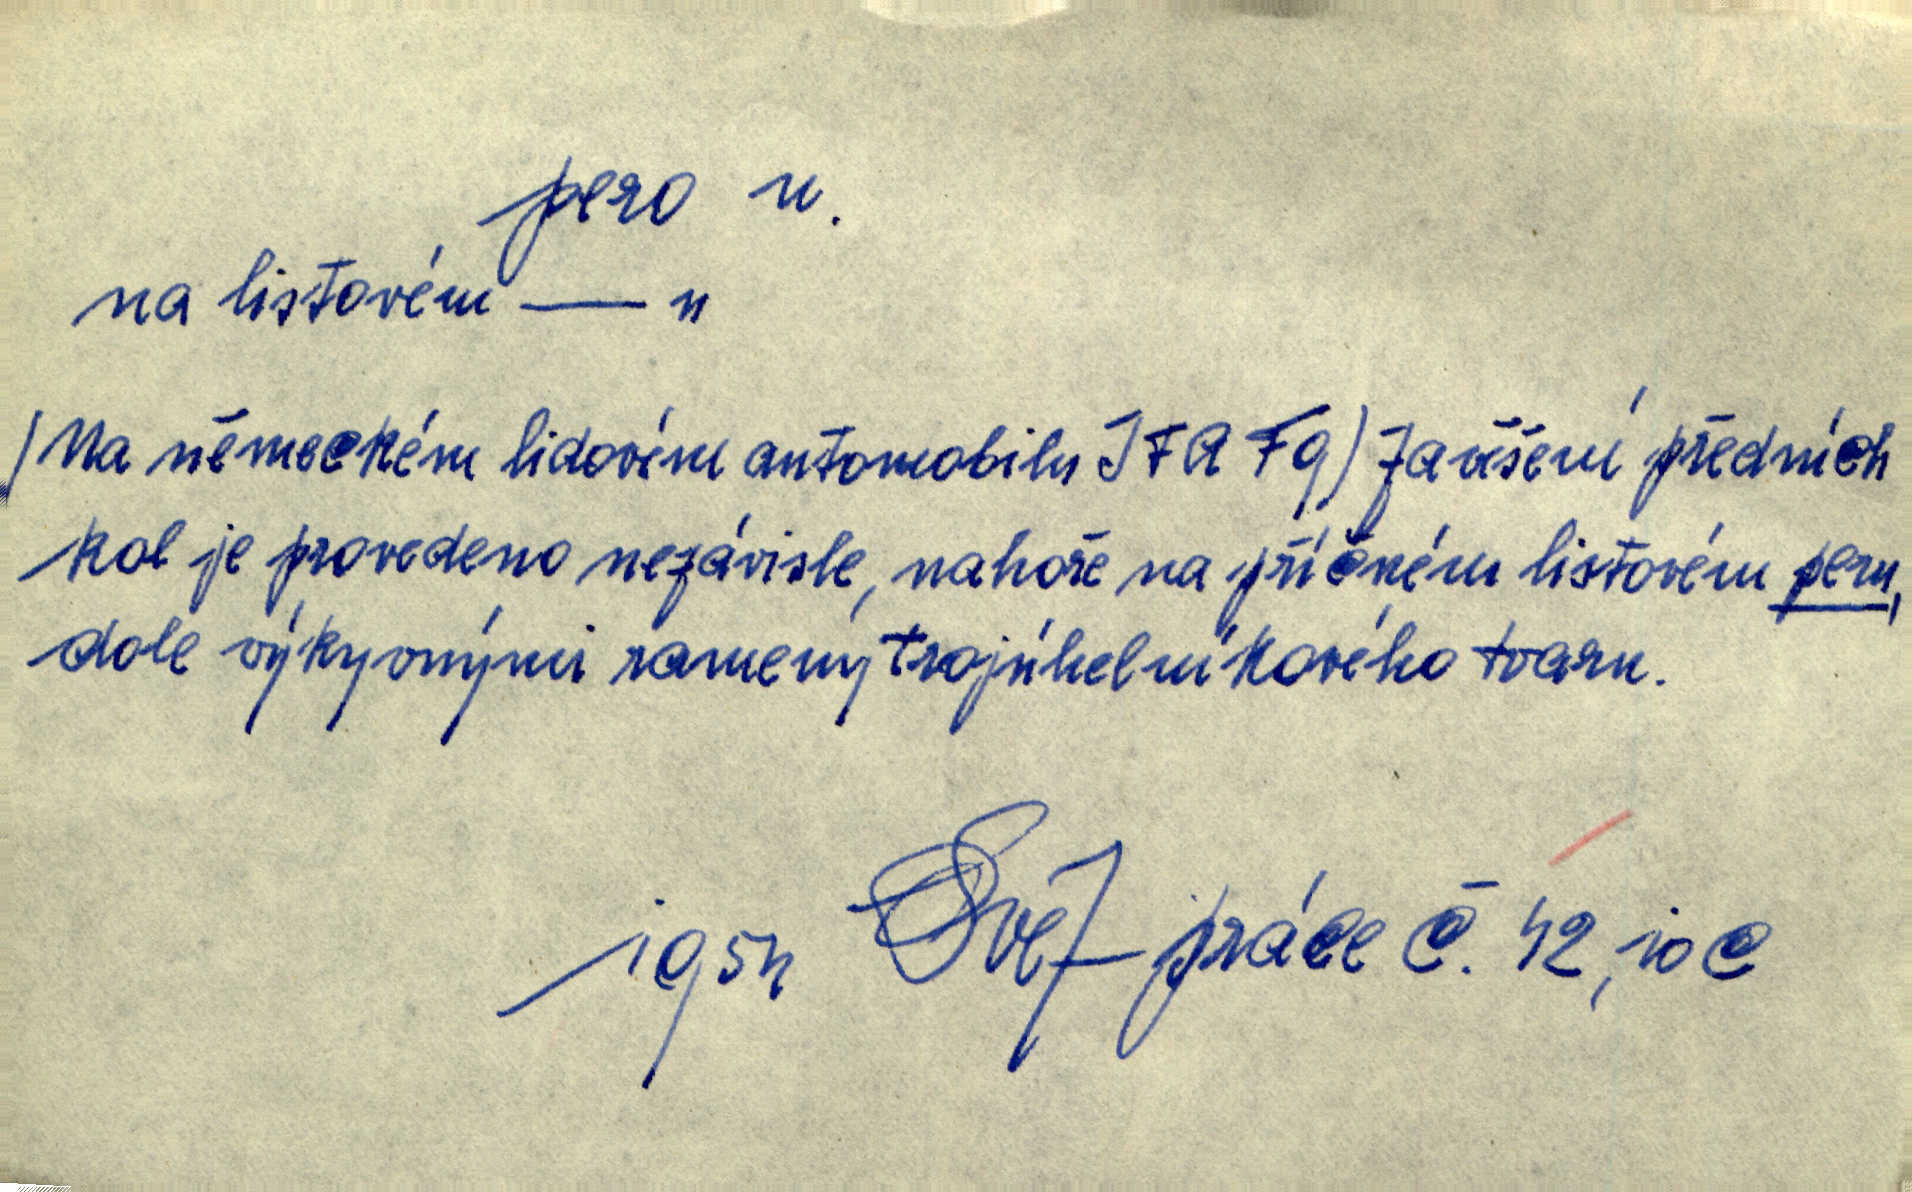 pero n.
na listovém — "
(Na německém lidovém automobilu IFA F9) Zavěšení předních
kol je provedeno nezávisle, nahoře na příčném listovém peru,
dole výkyvnými rameny trojúhelníkového tvaru.
1954 Svět práce č. 42, 10 c